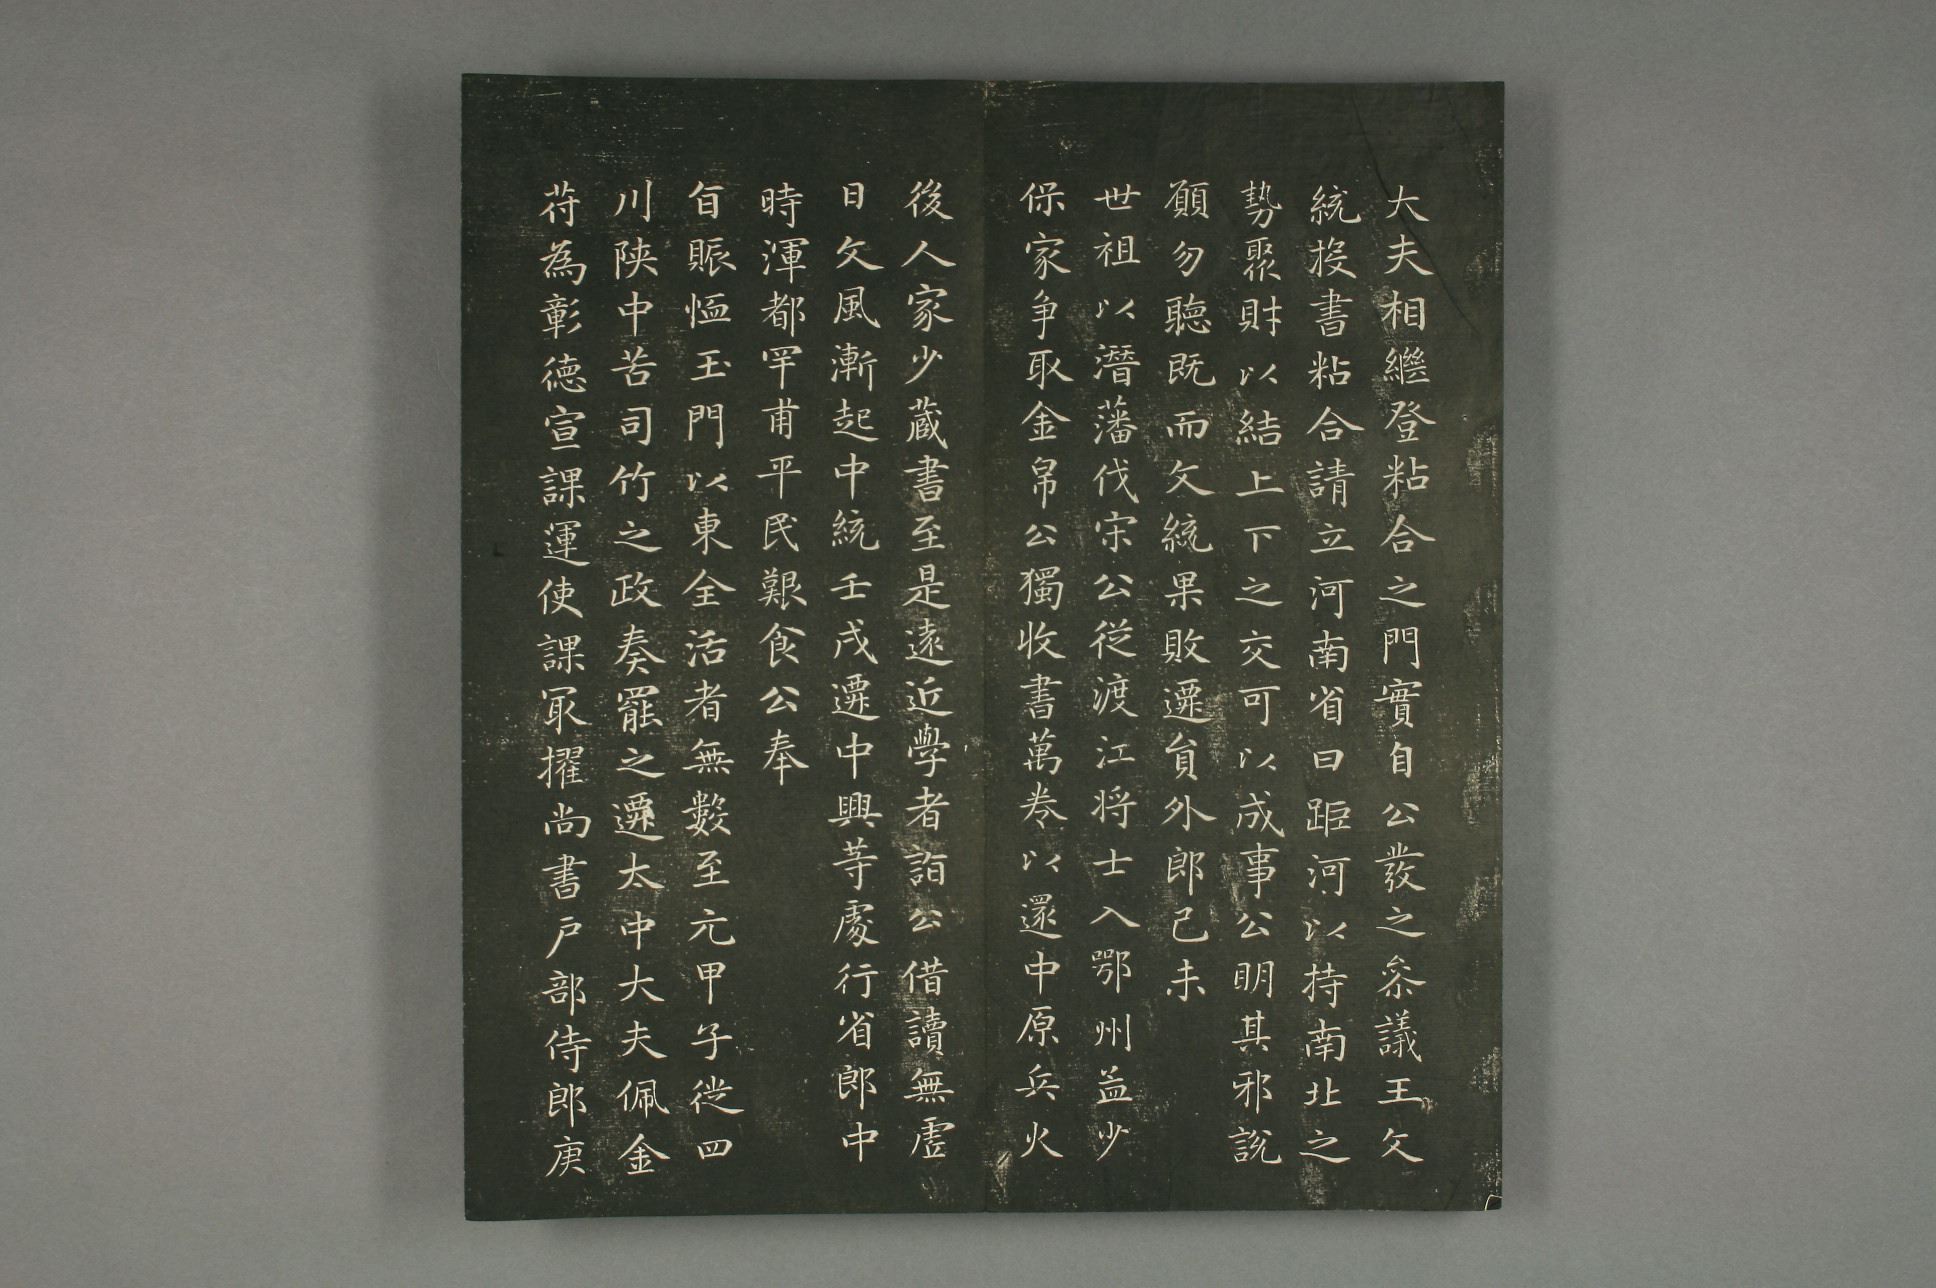 大夫相繼登粘合之門實自公發之叅議王文
統投書粘合請立河南省曰距河以持南北之
勢聚財以結上下之交可以成事公明其邪說
願勿聽既而文統果敗遷貟外郎己未
世祖以潛藩伐宋公從渡江將士入鄂州益少
保家争取金帛公獨收書萬卷以還中原兵火
後人家少蔵書至是遠近學者詣公借讀無虛
日文風漸起中統壬戌遷中興等處行省郎中
時渾都罕甫平民艱食公奉
旨賑恤玉門以東全活者無數至元甲子從四
川陝中苦司竹之政奏罷之遷太中大夫佩金
苻為彰德宣課運使課冣擢尚書戸部侍郎庚